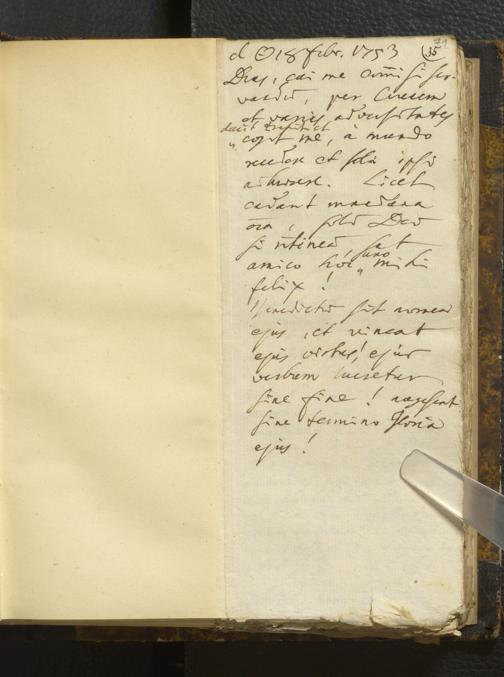 d ☉ 18 febr. 1753
71
35
Deus, cui me com̄isi ser-
vandū, per Crucem
et varias adversitates
ducit
cogit me, à mundo
recedere et soli ipsi
adhaerere. Licet
cadant mundana
oīa, solū Deū
si retineā, sat
amico hoc uno mihi
felix!
Benedictū sit nomen
ejus, et vincat
ejus virtus! ejus
verbum
sine fine! crescat
sine termino gloria
ejus!